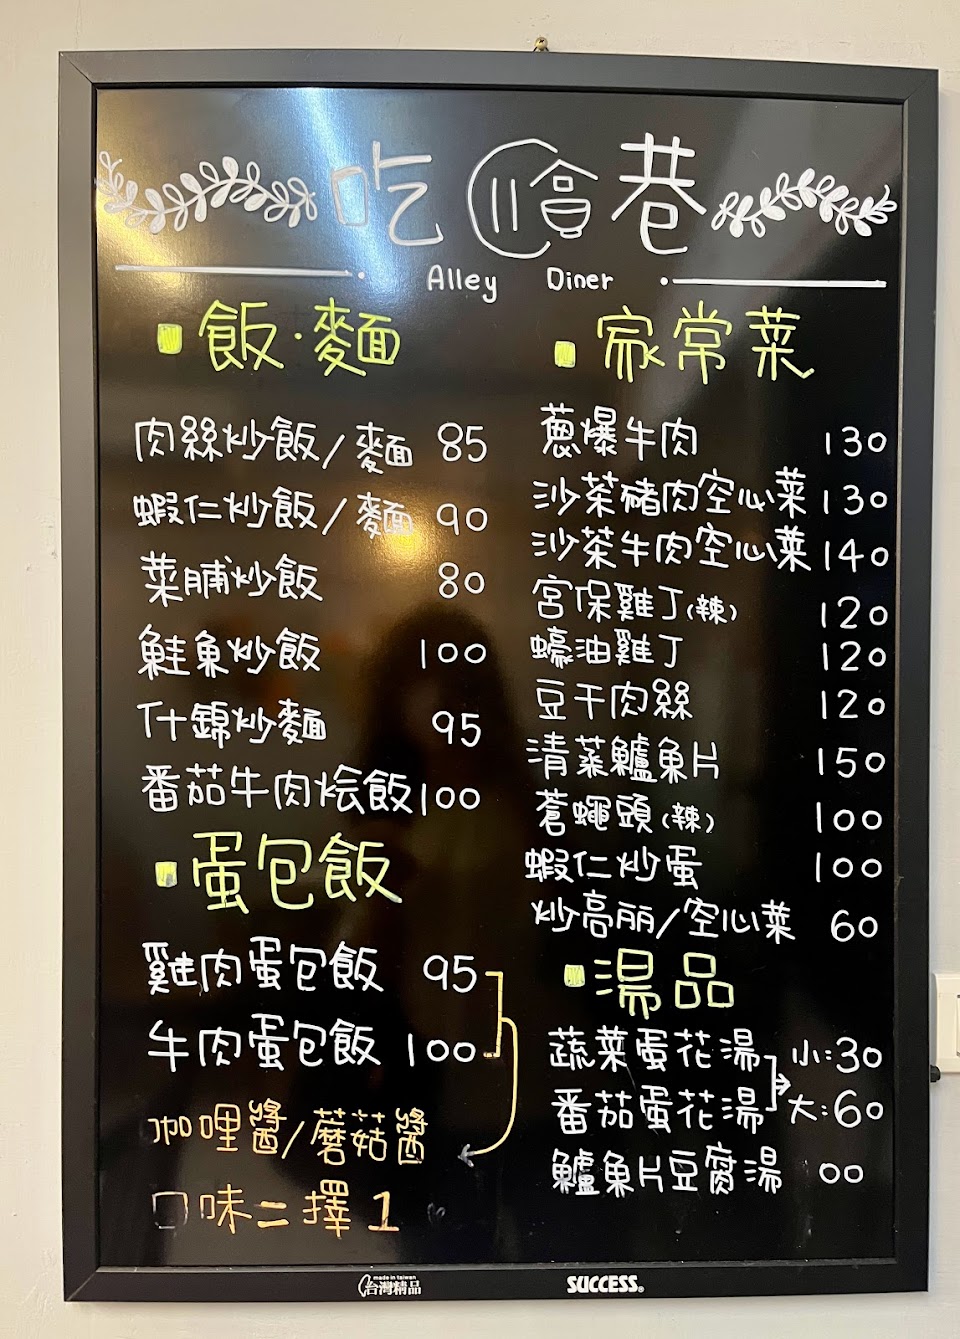 吃飽巷
Alley Diner
飯·麵
肉絲炒飯/麵 85
蝦仁炒飯/麵 90
菜脯炒飯 80
鮭魚炒飯 100
什錦炒麵 95
番茄牛肉燴飯 100
蛋包飯
雞肉蛋包飯 95
牛肉蛋包飯 100
咖哩醬/蘑菇醬
口味二擇1
家常菜
蔥爆牛肉 130
沙茶豬肉空心菜 130
沙茶牛肉空心菜 140
宮保雞丁(辣) 120
蠔油雞丁 120
豆干肉絲 120
清蒸鱸魚片 150
蒼蠅頭(辣) 100
蝦仁炒蛋 100
炒高丽/空心菜 60
湯品
蔬菜蛋花湯 小:30
番茄蛋花湯 大:60
鱸魚片豆腐湯 00
made in taiwan
台灣精品
SUCCESS®